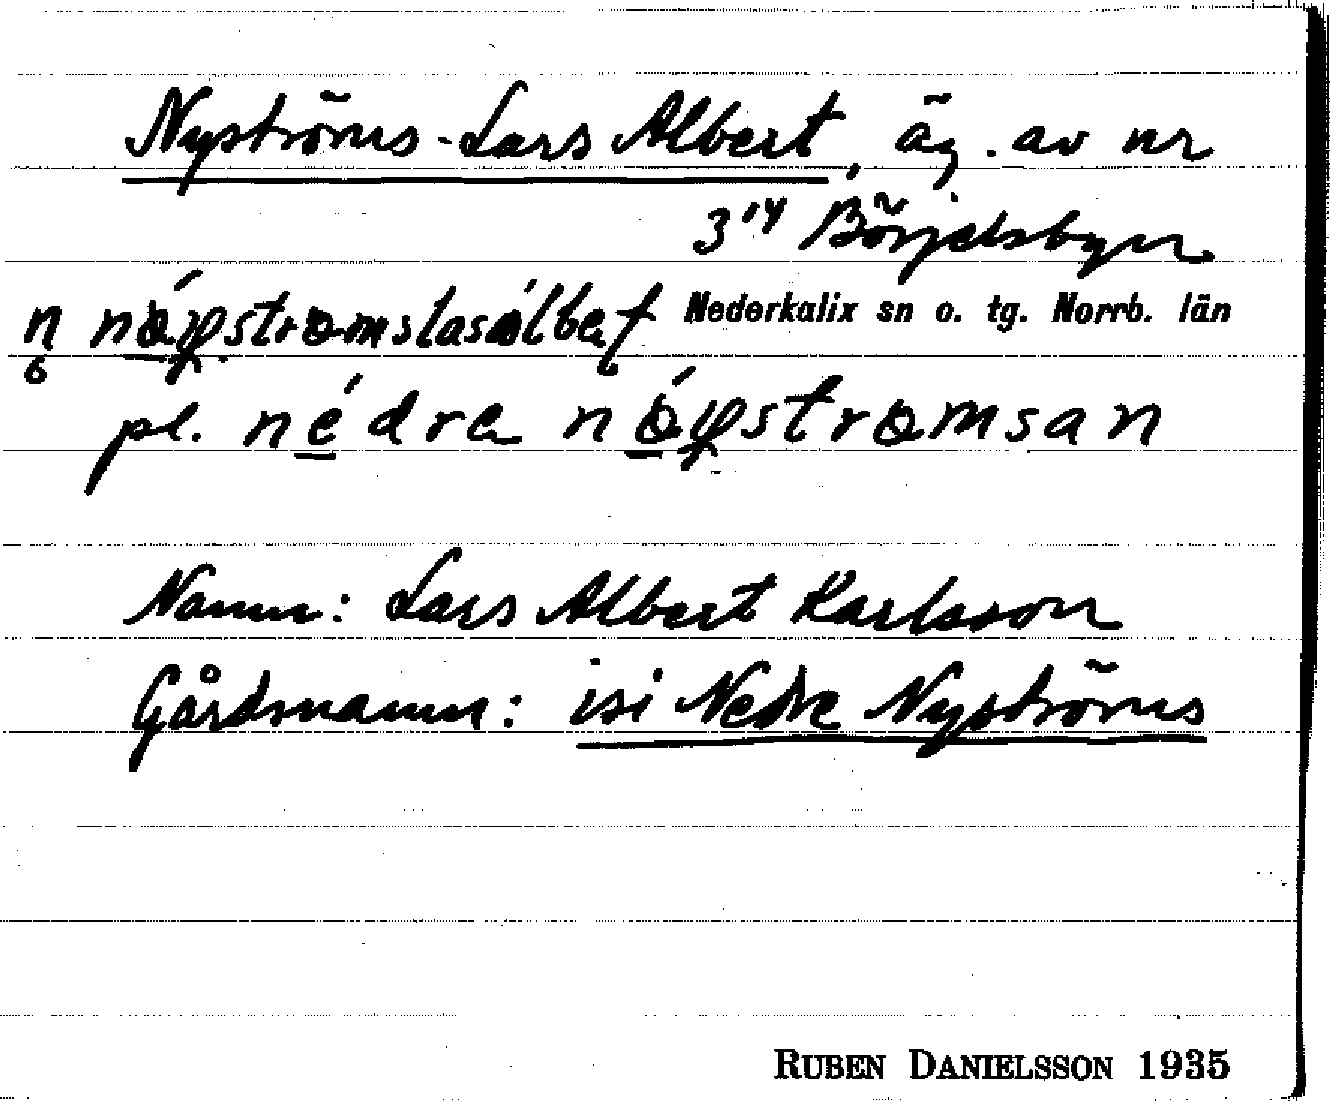 Nyströms-Lars Albert, äg. av nr
3¹⁴ Börjelsbyn
Nederkalix sn o. tg. Norrb. län
pl. nédra
Namn: Lars Albert Karlsson
Gårdsnamn: isi Nedre Nyströms
RUBEN DANIELSSON 1935